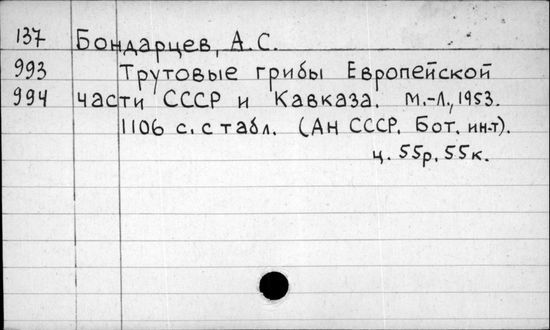 137 Бондарцев, А.С.
993 Трутовые грибы Европейской
994 части СССР и Кавказа. М.-Л., 1953.
1106 с. с табл. (АН СССР. Бот. ин-т).
ц. 55р. 55к.